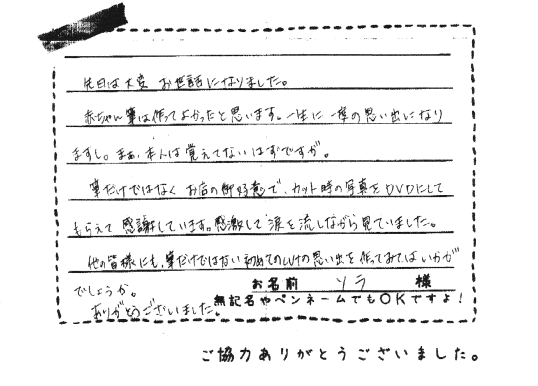 先日は大変 お世話になりました。
赤ちゃん筆は作ってよかったと思います。一生に一度の思い出になり
ますし。まぁ、本人は覚えてないはずですが。
筆だけではなく お店の御好意で、カット時の写真をDVDにして
もらえて 感謝しています。感激して涙を流しながら見ていました。
他の皆様にも、筆だけではない初めてのcutの思い出を作ってみてはいかが
でしょうか。
ありがとうございました。
お名前 ソラ 様
無記名やペンネームでもOKですよ!
ご協力ありがとうございました。